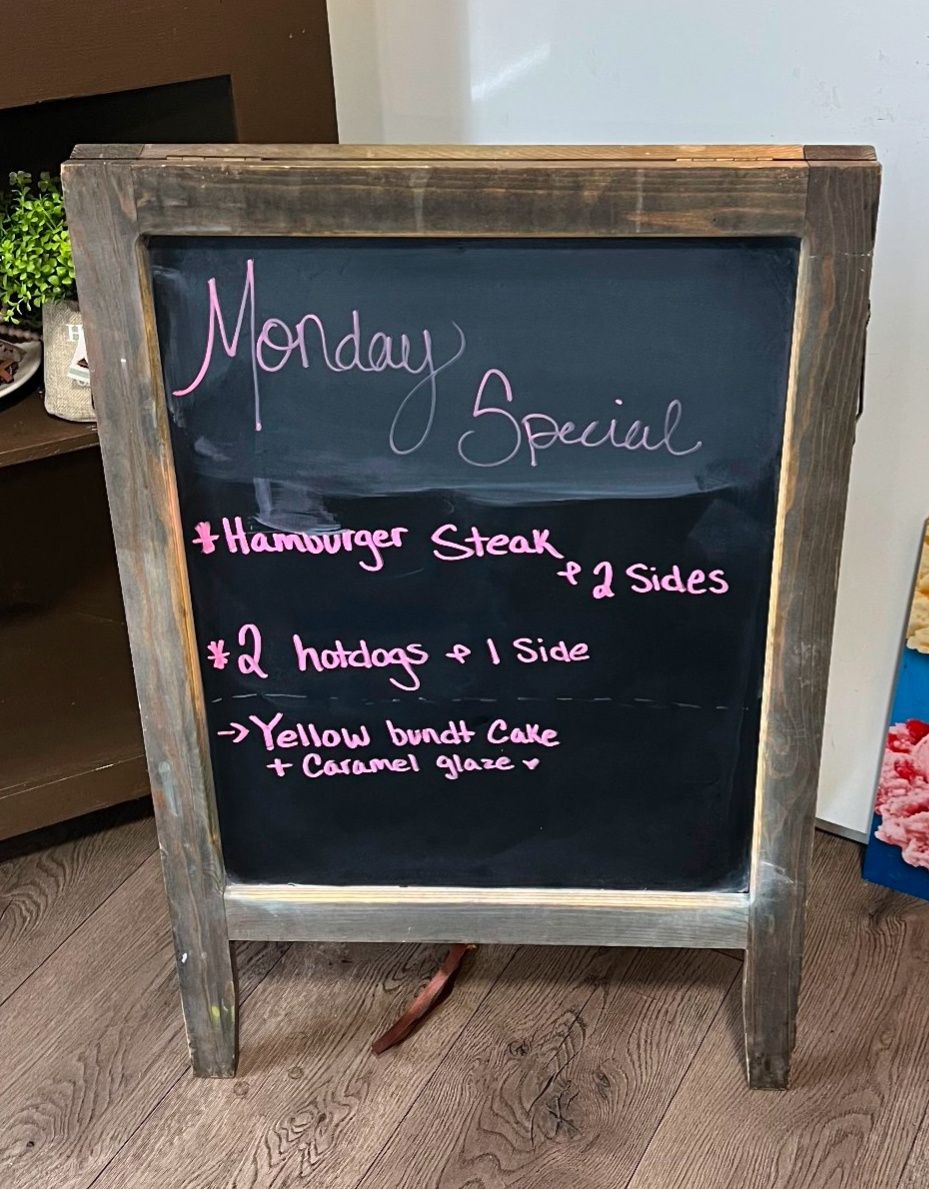 Monday
Special
*Hamburger Steak
& 2 Sides
*2 hotdogs & 1 Side
→Yellow bundt Cake
+ Caramel glaze ♥